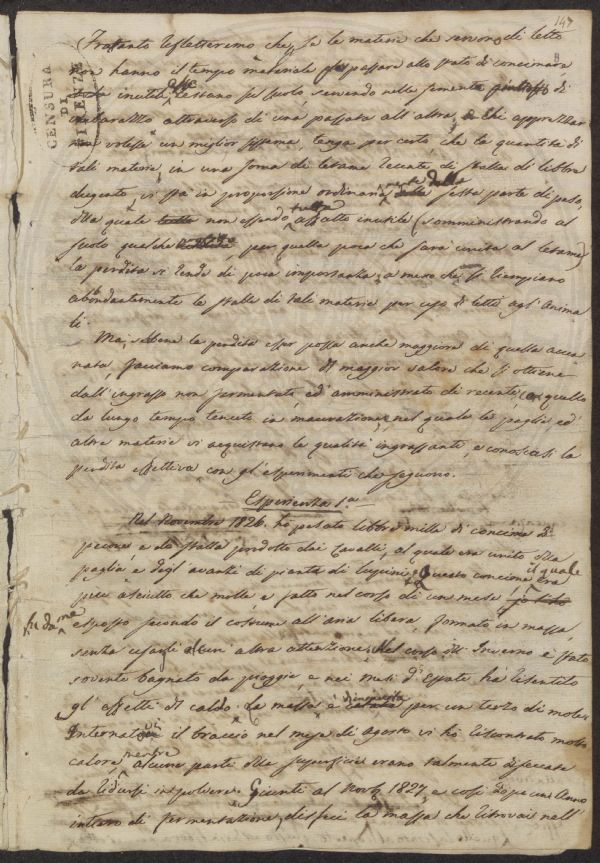 147
CENSURA
DI
VICENZA
Frattanto rifletteremo che se le materie che servono di letto
non hanno il tempo materiale per passare allo stato di concimaia
inutile che restano sul suolo servendo nelle semente di
attraverso di una passata all'altra, e chi
volesse un miglior sistema, tenga per certo che la quantità di
tali materie, in una soma di letame recente di stalla di libbre
vi sta in proporzione ordinaria della sesta parte di peso,
alla quale non essendo affatto inutile (somministrando al
suolo qualche per quella poca che sarà unita al letame)
la perdita si rende di poca importanza, a meno che si riempiano
abbondantemente le stalle di tali materie per uso di letti agl'anima
li.
Ma, sebbene la perdita esser possa anche maggiore di quella accen
nata, facciamo comparazione di maggior valore che si ottiene
dall'ingrasso non fermentato ed amministrato di recente, a quello
da lungo tempo tenuto in macerazione, nel quale le paglie ed
altre materie vi acquistano la qualità ingrassante, e conoscasi la
perdita effettiva con gl'esperimenti che seguono.
Esperienza 1.a
Nel Novembre 1826 ho pesato libbre mille di concime di
pecore e di stalla prodotto dai Cavalli, al quale era unito della
paglia e degl'avanzi di pianta di lupini. Questo concime il quale era
più asciutto che molle, e fatto nel corso di un mese
fu da me esposto secondo il costume all'aria libera, formato in massa,
senza usargli alcun altra attenzione. Nel corso dell'Inverno è stato
sovente bagnato da pioggie e nei mesi d'Estate ha risentito
gl'effetti di caldo. La massa è diminuita per un terzo di mole.
Internatovi il braccio nel mese di Agosto vi ho riscontrato molto
calore, mentre alcune parti della superficie erano talmente diseccate
da ridursi in polvere. Giunti al Novb. 1827, e così dopo un Anno
intero di fermentazione, disfeci la massa che ritrovai nell'